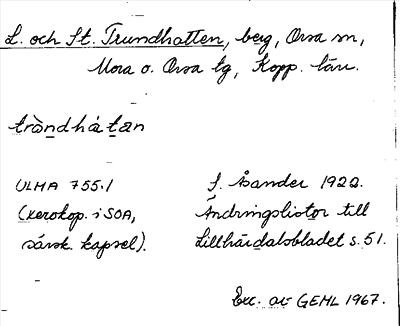 L. och St. Trundhatten, berg, Orsa sn,
Mora o. Orsa tg, Kopp. län.
tràndhátan
ULMA 755:1
(xerokop. i SOA,
särsk. kapsel).
J. Åsander 1922.
Ändringslistor till
Lillhärdalsbladet s. 51.
Exc. av GEHL 1967.